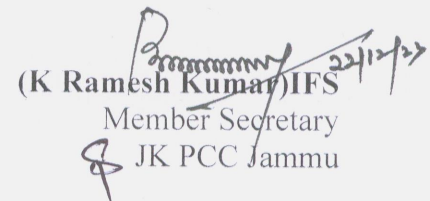 22/12/23
(K Ramesh Kumar)IFS
Member Secretary
JK PCC Jammu